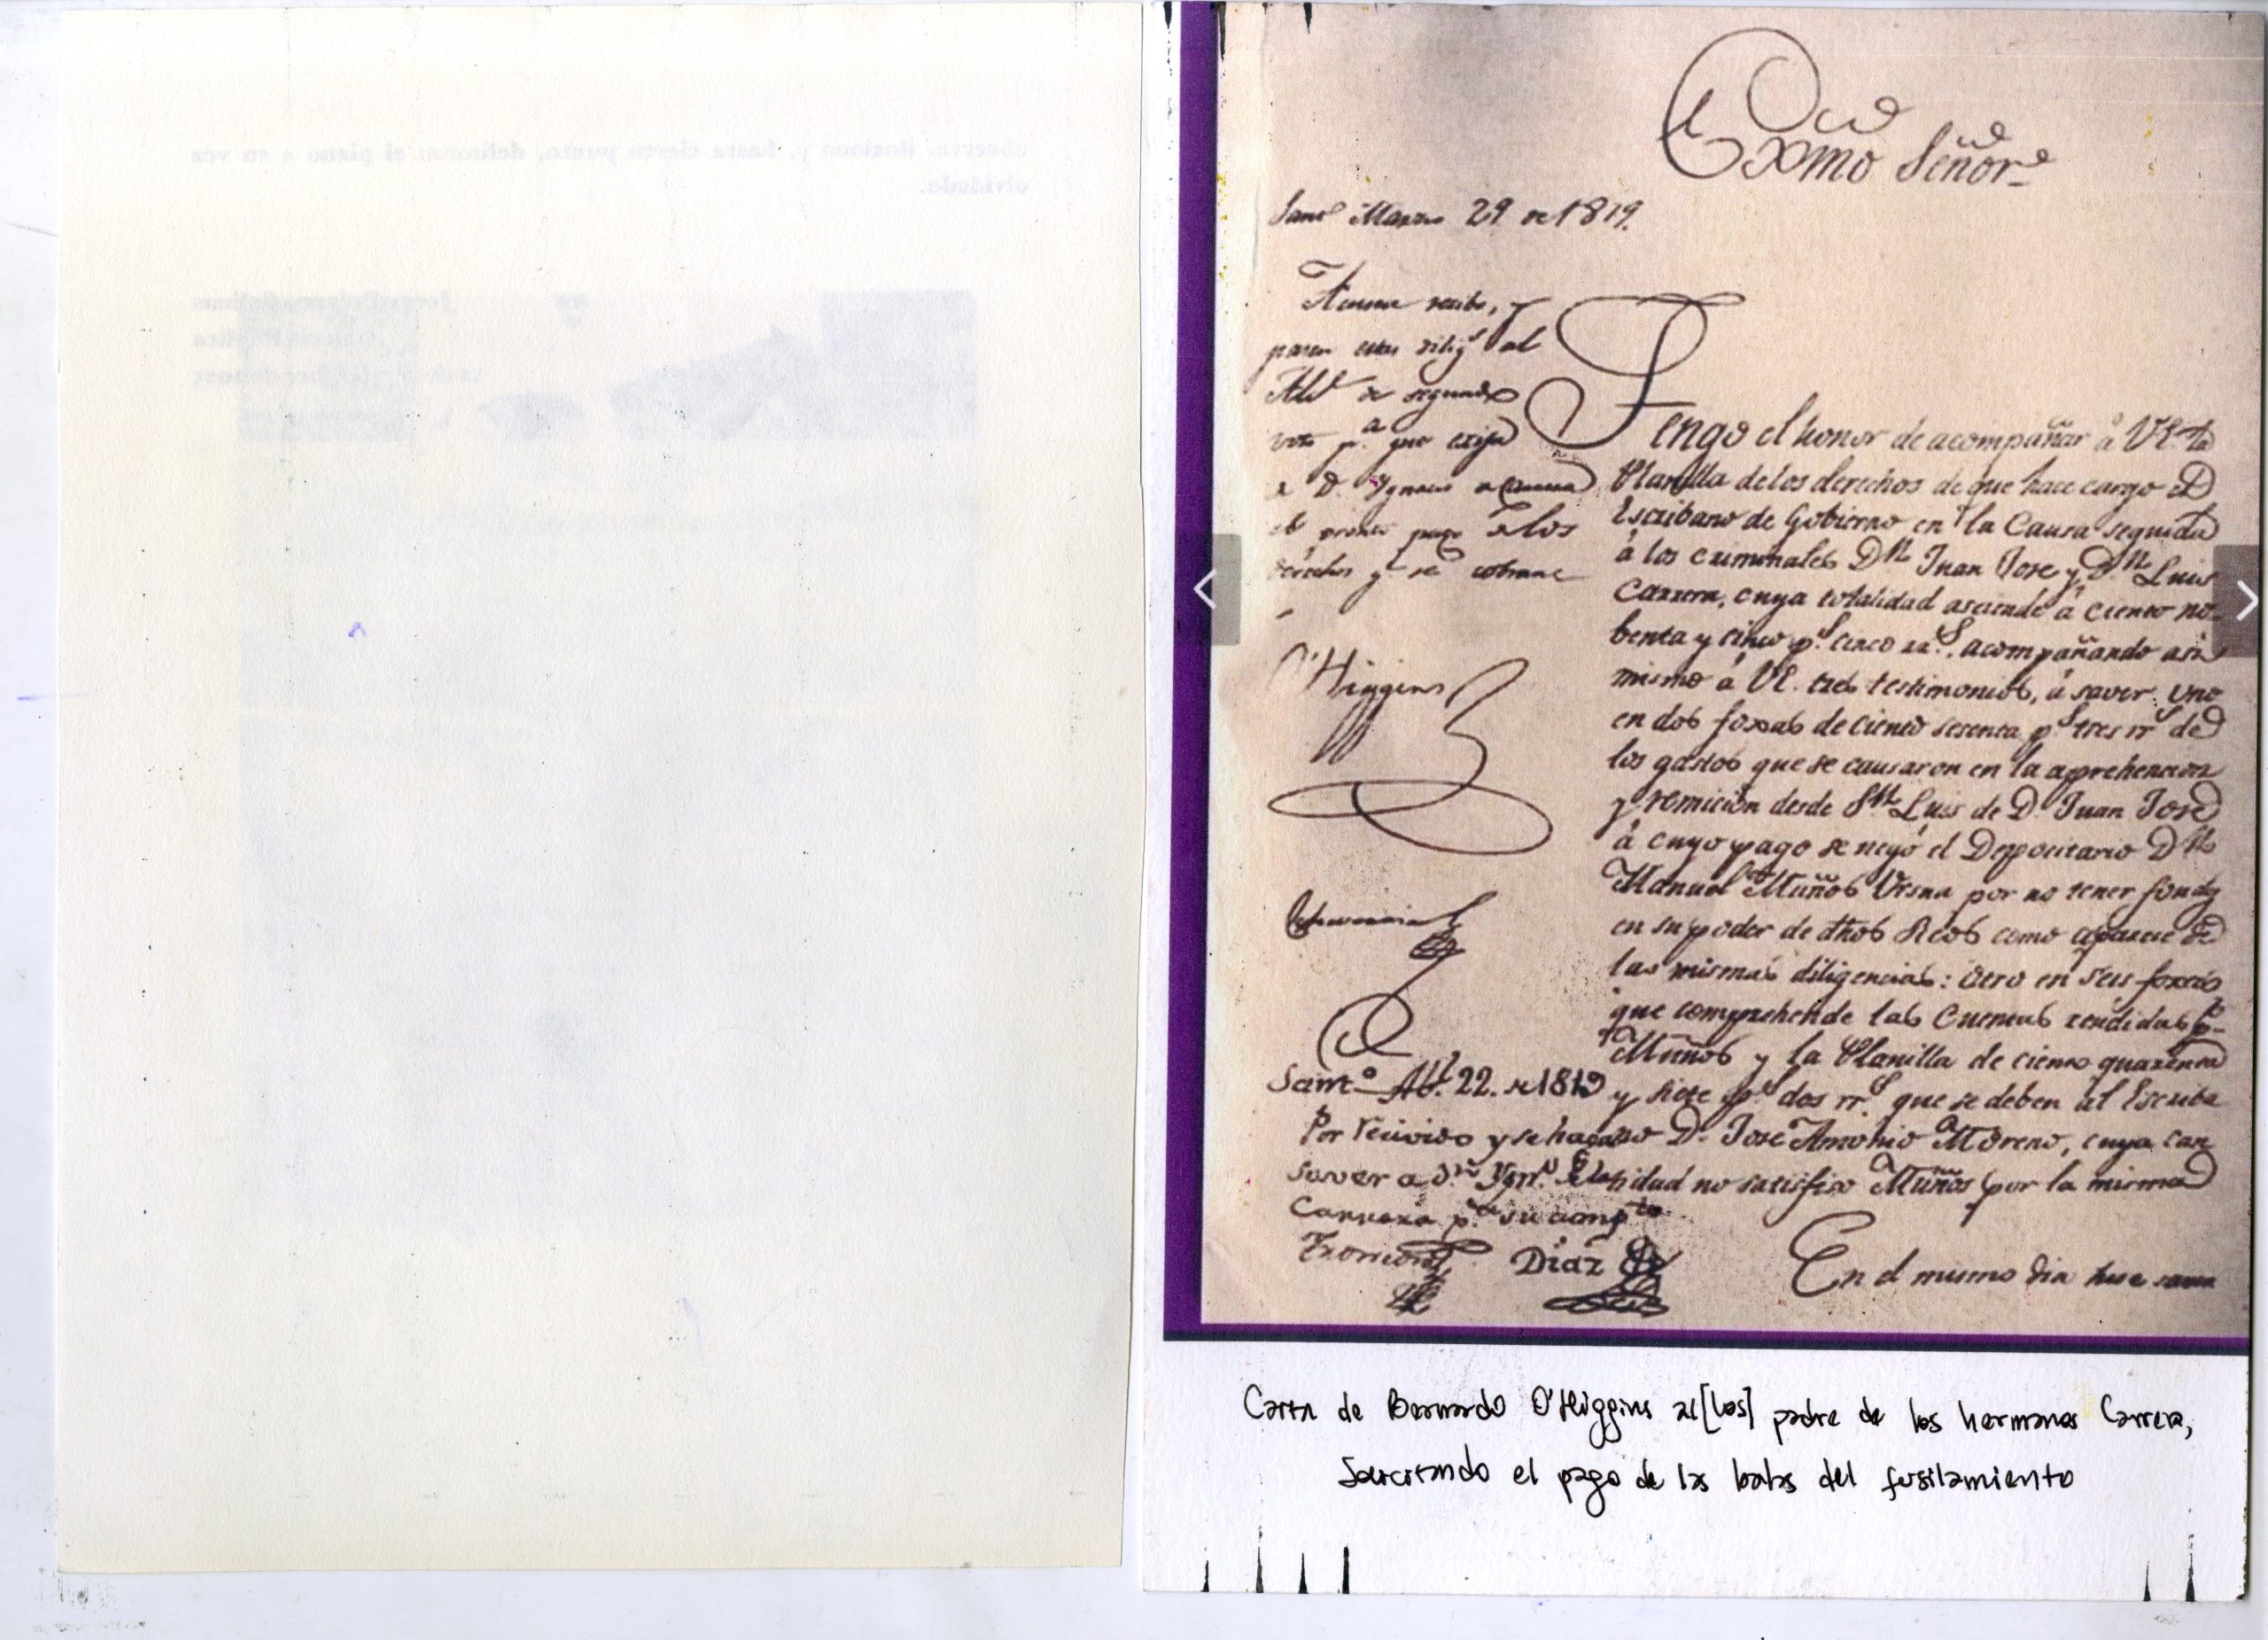 observa, ilusiona y, hasta cierto punto, delimita; el plano a su vez
olvidado.
Exmo Señor
Sant.º Marzo 29 de 1819.
Acuse recibo, y
pasen estas dilig.s al
Alc.e de segundo
voto p.a que exija
a D. Ygnacio
el pronto pago de los
derechos q.e se cobran
O'Higgins
Echeverria
Tengo el honor de acompañar á VE. la
Planilla de los derechos de que hace cargo el
Escribano de Gobierno en la Causa seguida
á los criminales Dn Juan Jose y Dn Luis
Carrera, cuya totalidad asciende á ciento no-
benta y cinco p.s cinco rr.s, acompañando asi
mismo á VE. tres testimonios, á saver: uno
en dos foxas de ciento sesenta p.s tres rr.s de
los gastos que se causaron en la aprehencion
y remicion desde Sn Luis de D. Juan Jose
á cuyo pago se negó el Depocitario Dn
Manuel Muños Ursua por no tener fondos
en su poder de dhos Reos como aparece de
las mismas diligencias: otro en seis foxas
que comprehende las Cuentas rendidas p.r
Muños y la Planilla de ciento quarenta
y siete p.s dos rr.s que se deben al Escriba
no D. Jose Antonio Moreno, cuya can
tidad no satisfizo Muños por la misma
Sant.º Ab.l 22. de 1819
Por recivido y se haga
saver a D.n Ygn.o de la
Carrera p.a su cump.to
Díaz
En el mismo dia hise saver
Carta de Bernardo O'Higgins al[los] padre de los hermanos Carrera,
Solicitando el pago de las balas del fusilamiento